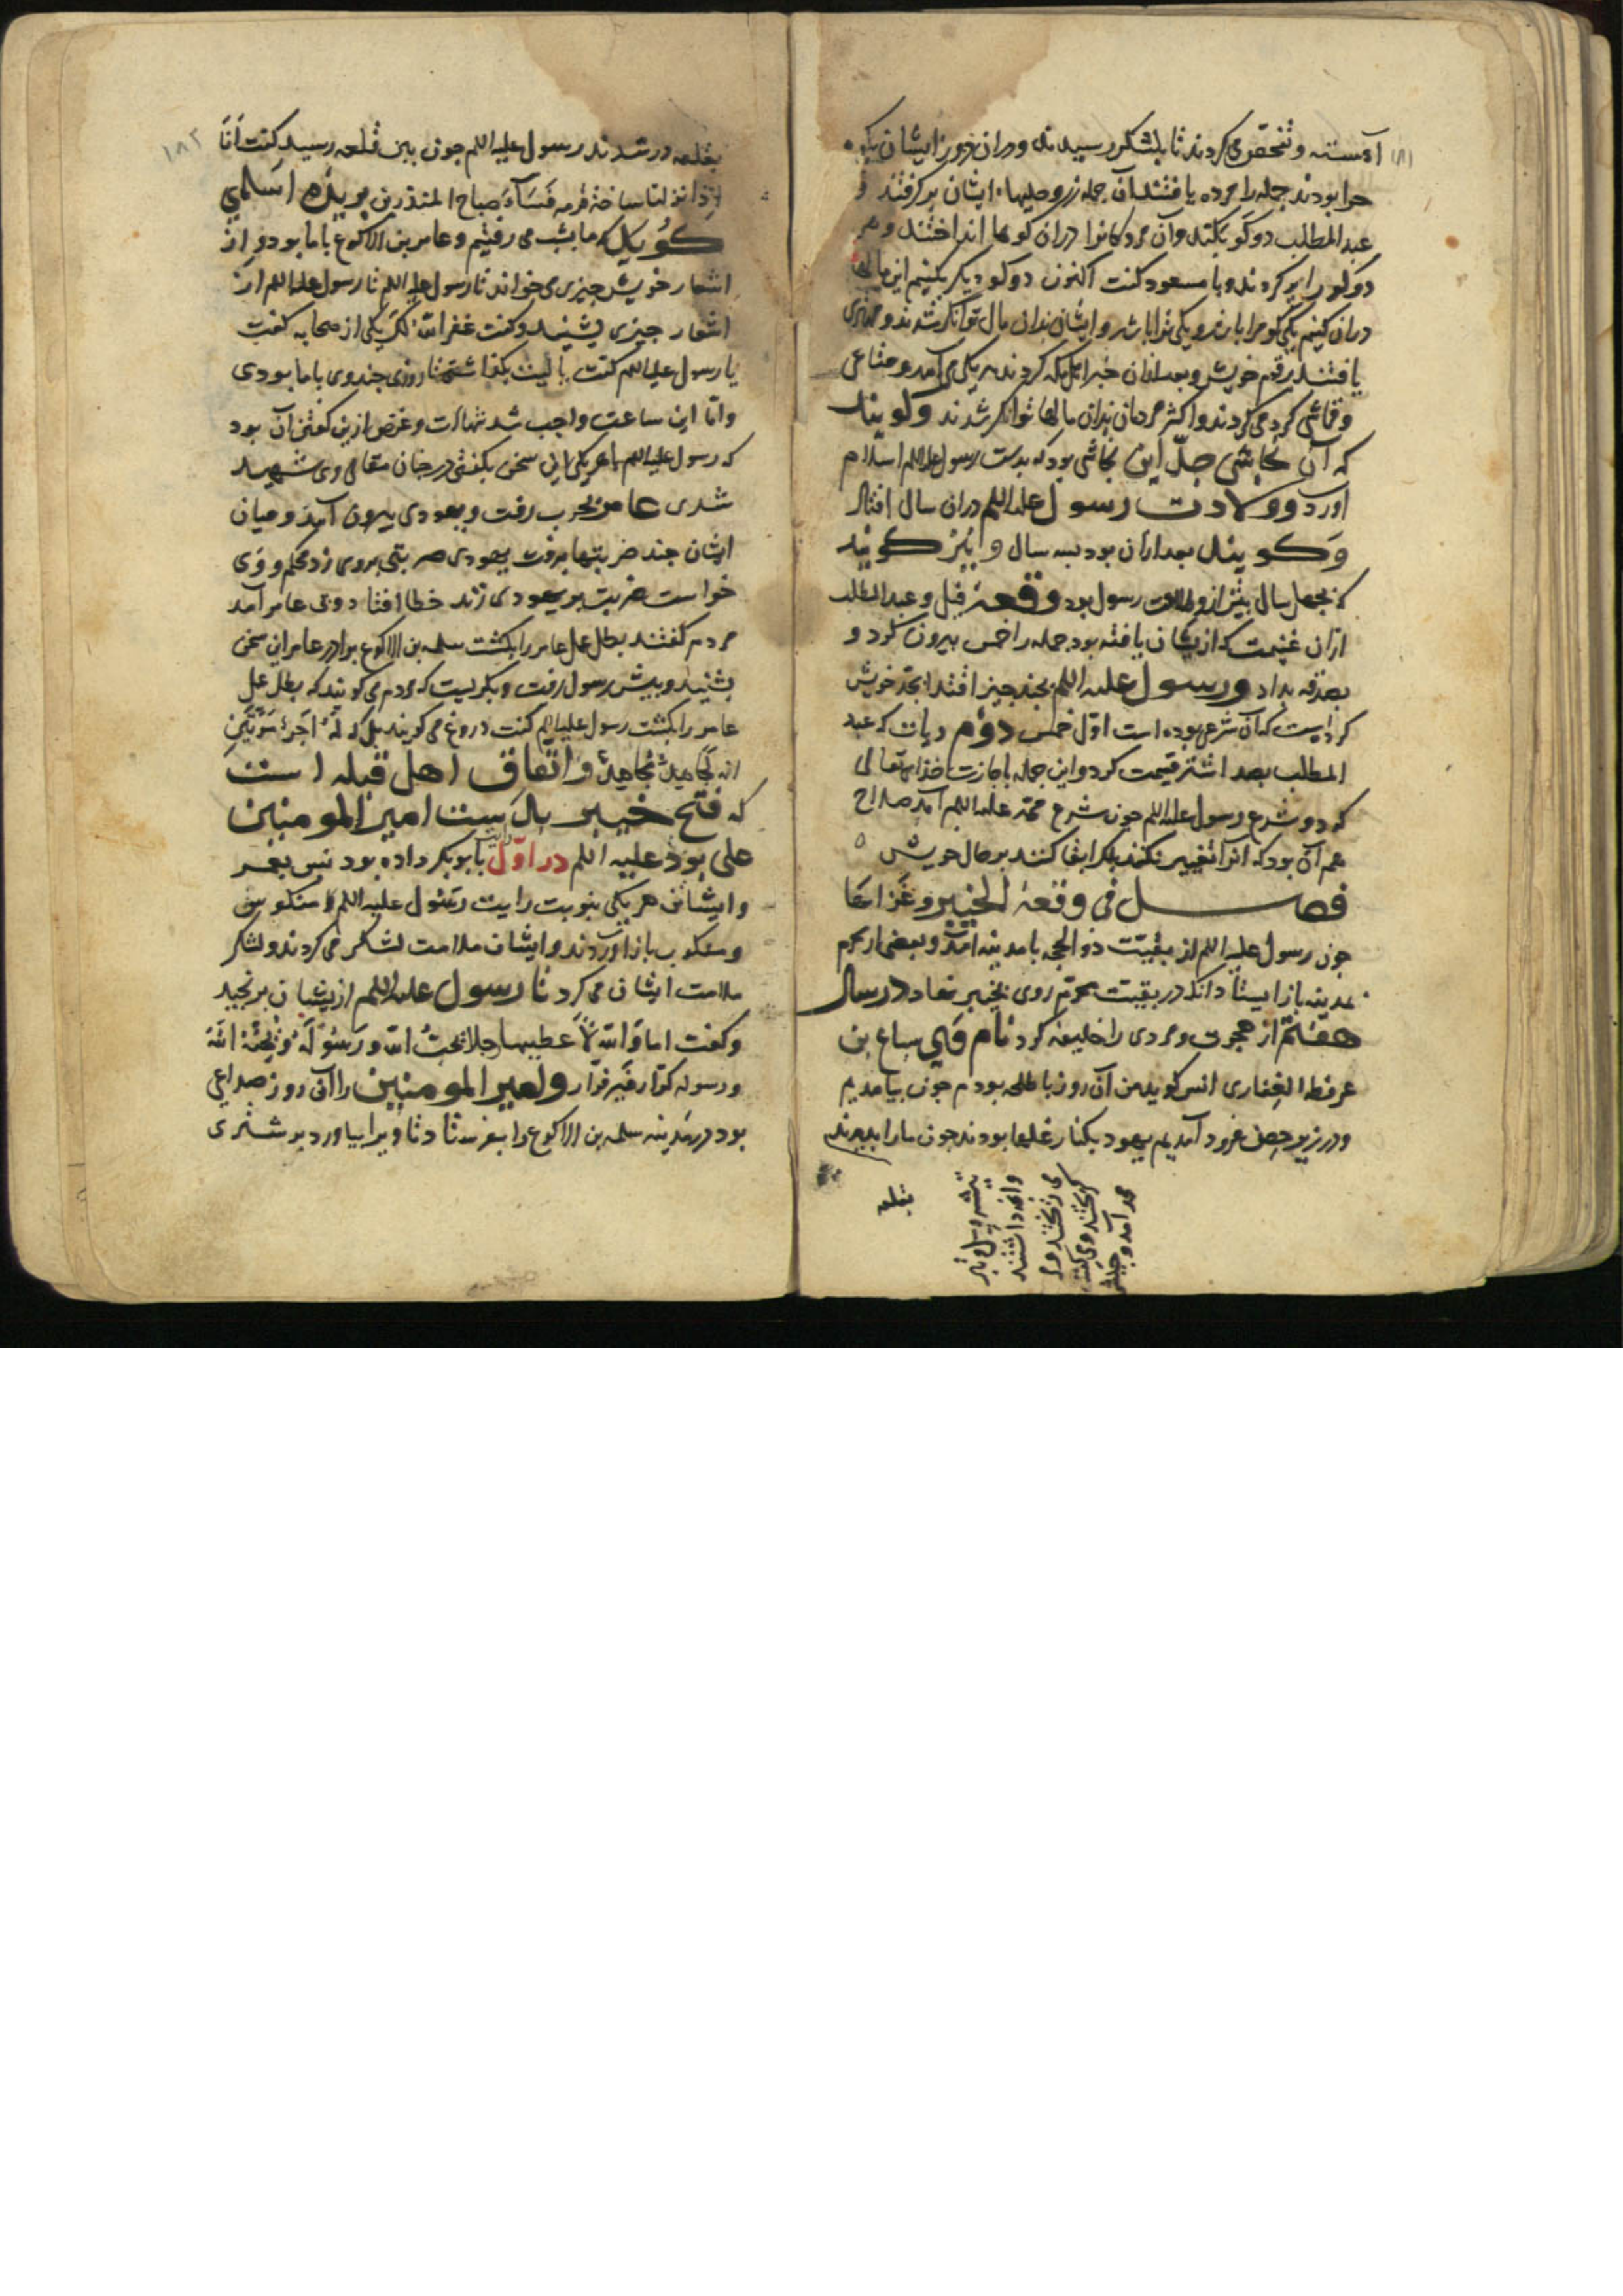 آهسته و تفحص می کردند تا بلشکر رسیدند و دران روز ایشان بکوه ۱۸۱
حرا بودند جمله را مرده یافتند آن جمله زر و حلیها ایشان برگرفتند و
عبد المطلب دو کو بکند و آن مردکانرا دران کوها انداختند و هر
دو کو را پر کردند و با مسعود کفت اکنون دو کو دیکر بکنیم این مالها
دران کنیم یکی کو مرا باشد و یکی ترا باشد و ایشان بدان مال توانکر شدند و
یافتند بر قوم خویش و بعد ازان خبر اهل مکه کردند هر یکی می آمد و متاعی
و قماشی کرد می کردند و اکثر مردمان بدان مالها توانکر شدند و کویند
که آن نجاشی جد این نجاشی بود که بدست رسول علیه السلم اسلام
آورد و ولادت رسول علیه السلم دران سال افتاد
و کویند بعد ازان بود بسه سال و نیز کویند
که بچهل سال پیش از ولادت رسول بود وقعه فیل و عبد المطلب
ازان غنیمت که ازیشان یافته بود جمله را خمس بیرون کرد و
بصدقه بداد و رسول علیه السلم بچند چیز اقتدا بجد خویش
کردست که آن شرعی بوده است اول خمس دوم دیات که عبد
المطلب بصد اشتر قیمت کرد و این جمله باجازت خذای تعالی
که در شرع رسول علیه السلم چون شرع محمد علیه السلم آمد صلاح
هم آن بود که انرا تغییر نکند بلکه ابقا کنند بر حال خویش ه
فصل فی وقعة الخیبر و غزاتها
چون رسول علیه السلم از بقیت ذو الحجه با مدینه آمد و بعضی از محرم
بمدینه باز ایستاد آنکه در بقیت محرم روی بخیبر نهاد در سال
هفتم از هجرت و مردی را خلیفه کرد نام وی سباع بن
عرفطه الغفاری انس کوید من آن روز با طلحه بودم چون بیامدیم
و در زیر حصن فرود آمدیم یهود بکنار غلها بودند چون ما را بدیدند
محمد آمد و جیش
می کریختند و می کفتند
وانه داشتند
بقلعه
بقلعه در شدند رسول علیه السلم چون ببن قلعه رسید کفت انا ۱۸۲
اذا نزلنا ساحة قوم فساء صباح المنذرین بریده اسلمی
کوید که ما بشب می رفتیم و عامر بن الاکوع با ما بود و از
اشعار خویش چیزی می خواند تا رسول علیه السلم تا رسول علیه السلم از
اشعار چیزی بشنید و کفت غفر الله لک یکی از صحابه کفت
یا رسول علیه السلم کفت یا لیت بکذاشتی تا روزی چند وی با ما بودی
و اما این ساعت واجب شد شهادت و غرض ازین کفتن آن بود
که رسول علیه السلم با هر یکی این سخن بکفتی در جنان مقامی وی شهید
شدی عامر بحرب رفت و یهودی بیرون آمد و میان
ایشان چند ضربتها برفت یهودی ضربتی بروی زد محکم و وی
خواست ضربت بر یهودی زند خطا افتاد و بر عامر آمد
مردم کفتند بطل عمل عامر را بکشت سلمه بن الاکوع برادر عامر این سخن
بشنید و پیش رسول رفت و بکریست که مردم می کویند که بطل عمل
عامر را بکشت رسول علیه السلم کفت دروغ می کویند بل که له اجره مرتین
انه لجاهد مجاهد و اتفاق اهل قبله است
که فتح خیبر بدست امیر المومنین
علی بوذ علیه السلم در اول رایت بابوبکر داده بود پس بعمر
و ایشان هر یکی بنوبت رایت رسول علیه السلم منکوس
و منکوب باز آوردند و ایشان ملامت لشکر می کردند و لشکر
ملامت ایشان می کرد تا رسول علیه السلم ازیشان برنجید
و کفت اما والله لاعطینها رجلا یحب الله و رسوله و یحبه الله
و رسوله کرار غیر فرار و امیر المومنین را آن روز صداعی
بود در مدینه سلمه بن الاکوع را بفرستاد تا ویرا بیاورد بر شتری